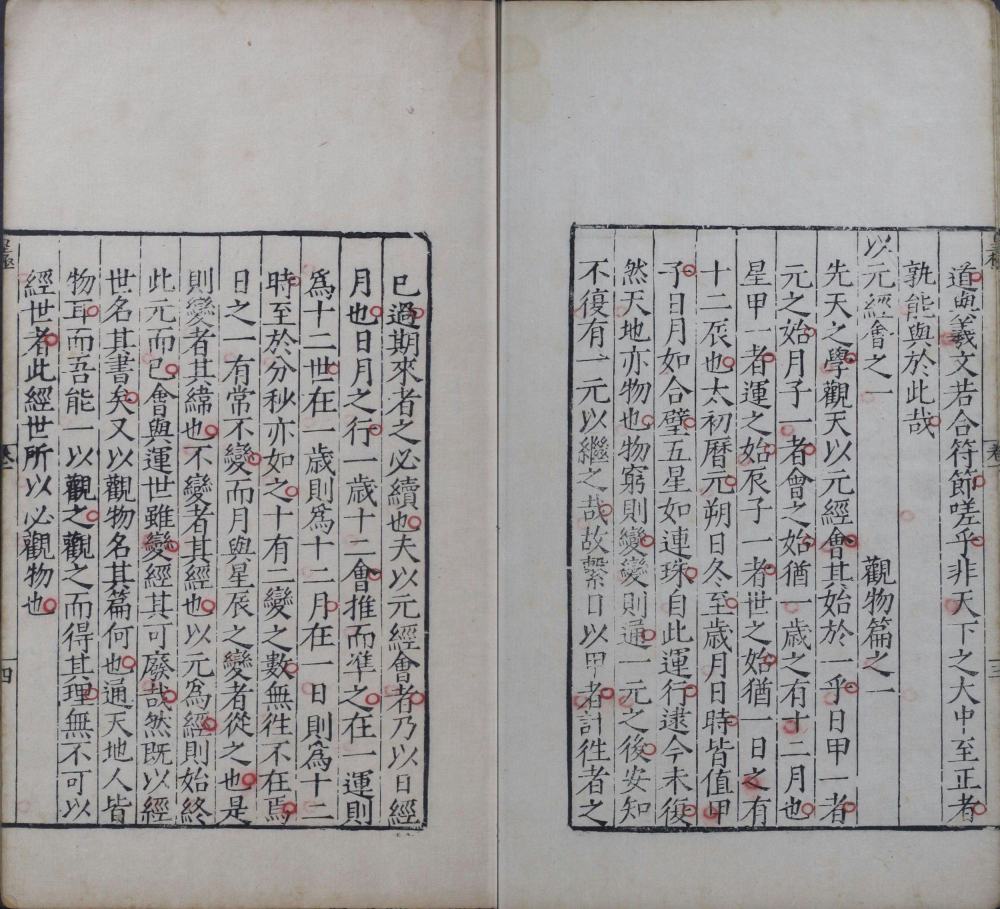 道奧羲文若合符節嗟乎非天下之大中至正者
孰能與於此哉
以元經會之一
觀物篇之一
先天之學觀天以元經會其始於一乎日甲一者
元之始月子一者會之始猶一歲之有十二月也
星甲一者運之始辰子一者世之始猶一日之有
十二辰也太初曆元朔日冬至歲月日時皆值甲
子日月如合璧五星如連珠自此運行逮今未復
然天地亦物也物窮則變變則通一元之後安知
不復有一元以繼之哉故繫日以甲者計徃者之
已過期來者之必續也夫以元經會者乃以日經
月也日月之行一歲十二會推而準之在一運則
爲十二世在一歲則爲十二月在一日則爲十二
時至於分秒亦如之十有二變之數無徃不在焉
日之一有常不變而月與星辰之變者從之也是
則變者其緯也不變者其經也以元為經則始終
此元而已會與運世雖變經其可廢哉然既以經
世名其書矣又以觀物名其篇何也通天地人皆
物耳而吾能一以觀之觀之而得其理無不可以
經世者此經世所以必觀物也
卷一
三
四